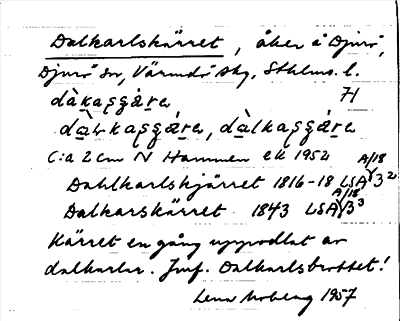 Dalkarlskärret, åker å Djurö,
Djurö sn, Värmdö skg, Sthlms. l.
71
C:a 2 cm N Hammen ek 1952
Dahlkarlskjärret 1816-18 LSA A/18 γ 3²
Dalkarskärret 1843 LSA A/18 γ 3³
Kärret en gång uppodlat av
dalkarlar. Jmf. Dalkarlsbrottet!
Lena Moberg 1957